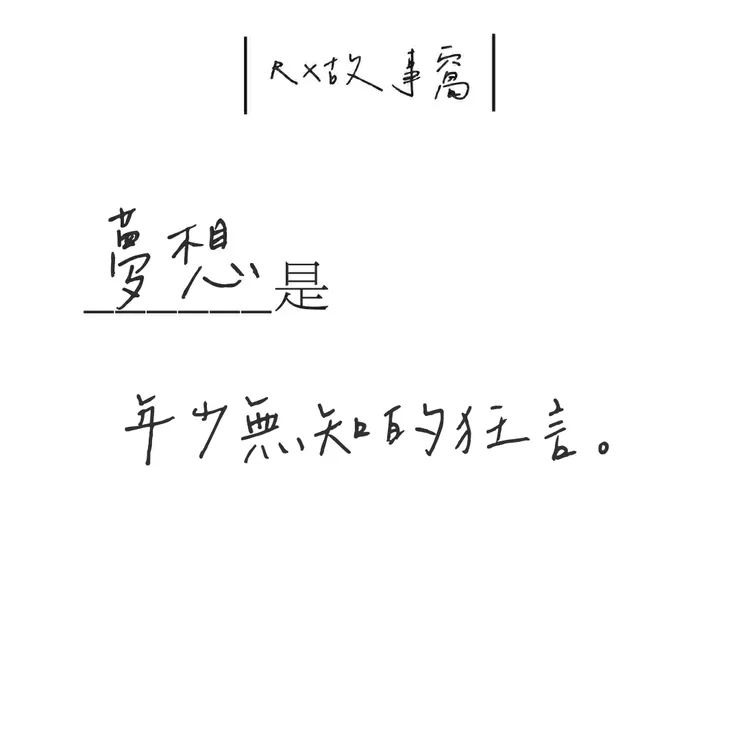 | R×故事窩 |
夢想是
年少無知的狂言。